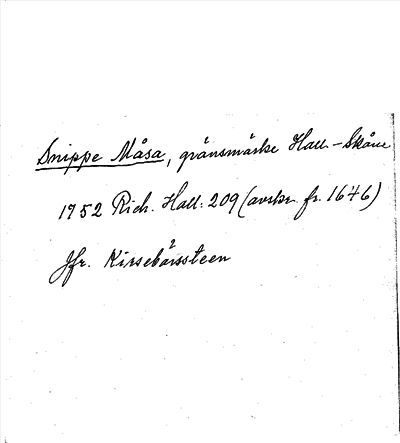 Snippe Måsa, gränsmärke Hall.-Skåne
1752 Rich. Hall. 209 (avskr. fr. 1646)
Jfr. Kirsebärssteen